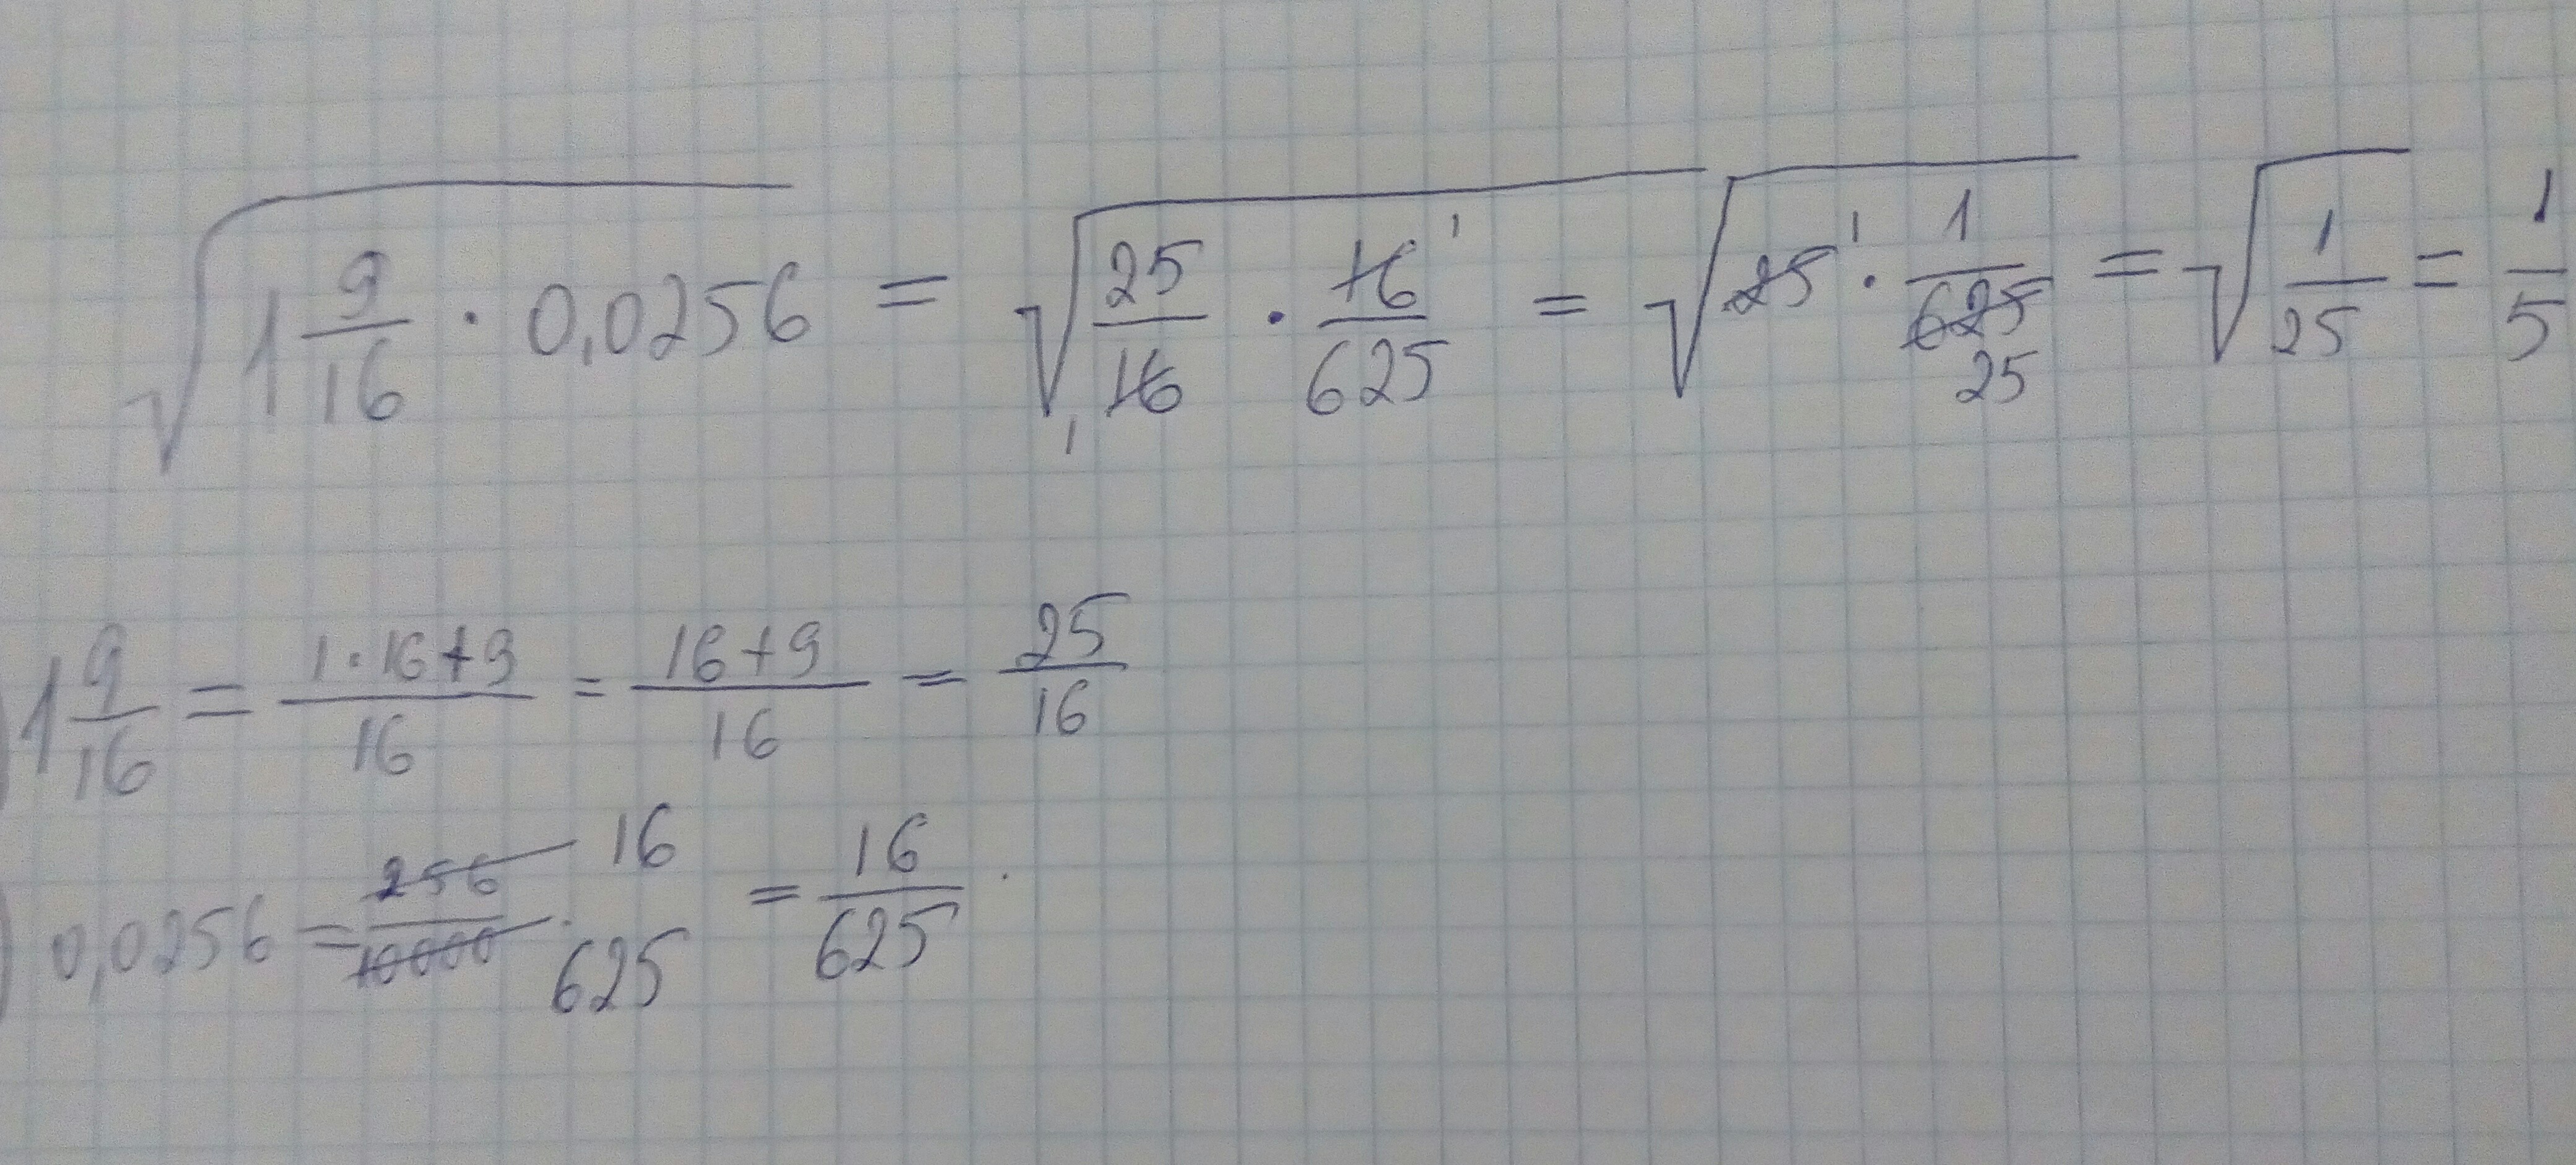 √(1 9/16 · 0,0256) = √(25/16 · 16/625) = √(25 · 1/625) = √(1/25) = 1/5
1 9/16 = (1·16+9)/16 = (16+9)/16 = 25/16
0,0256 = 256/10000 16/625 = 16/625